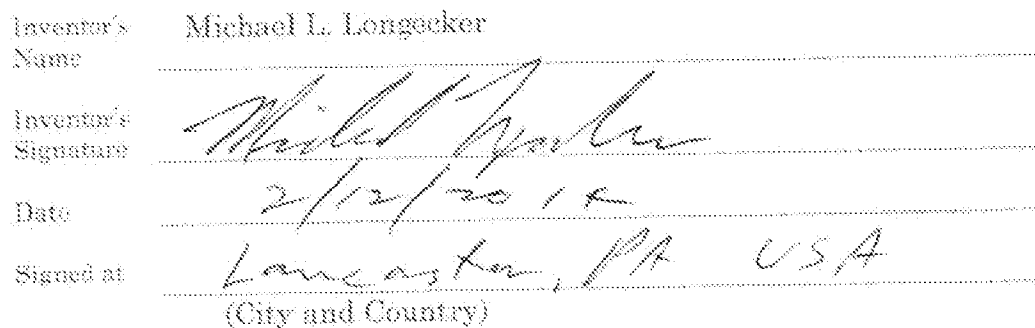 Inventor's Name Michael L. Longecker
Inventor's Signature
Date 2/12/2014
Signed at Lancaster, PA USA
(City and Country)